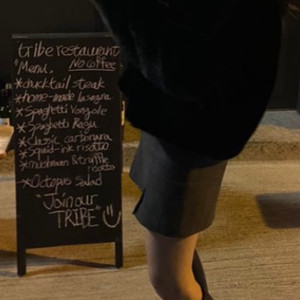 tribe restaurant
"Menu, No coffee
*ducktail steak
*home-made lasagna
*Spaghetti Vongole
*Spaghetti Ragu
*Classic carbonara
*Squid-ink risotto
*mushroom & truffle
risotto
*Octopus Salad
"Join our
TRIBE"